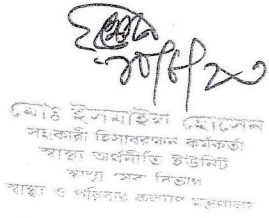 মোঃ ইসমাইল হোসেন
সহকারী হিসাবরক্ষণ কর্মকর্তা
স্বাস্থ্য অর্থনীতি ইউনিট
স্বাস্থ্য সেবা বিভাগ
স্বাস্থ্য ও পরিবার কল্যাণ মন্ত্রণালয়